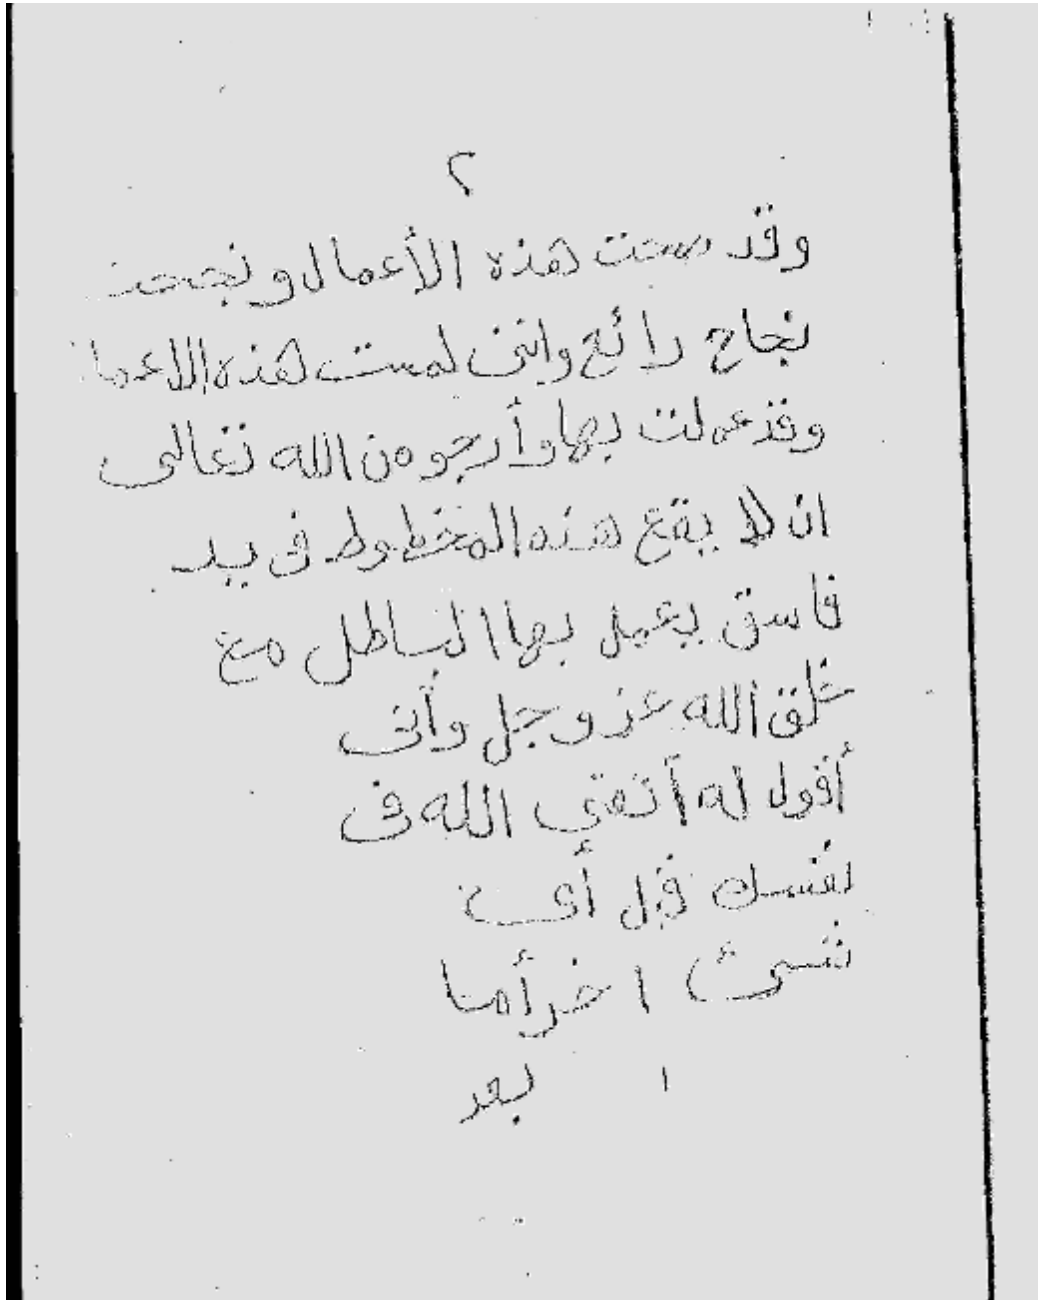 ٢
وقد صحت هذه الأعمال ونجحت
نجاح رائع وانى لمست هذه الاعما
وقد عملت بها وأرجو من الله تعالى
ان لا يقع هذه المخطوط فى يد
فاسق يعمل بها الباطل مع
خلق الله عز وجل وأنى
أقول له أتقي الله فى
نفسك قبل أى
شىئ اخر أما
بعد